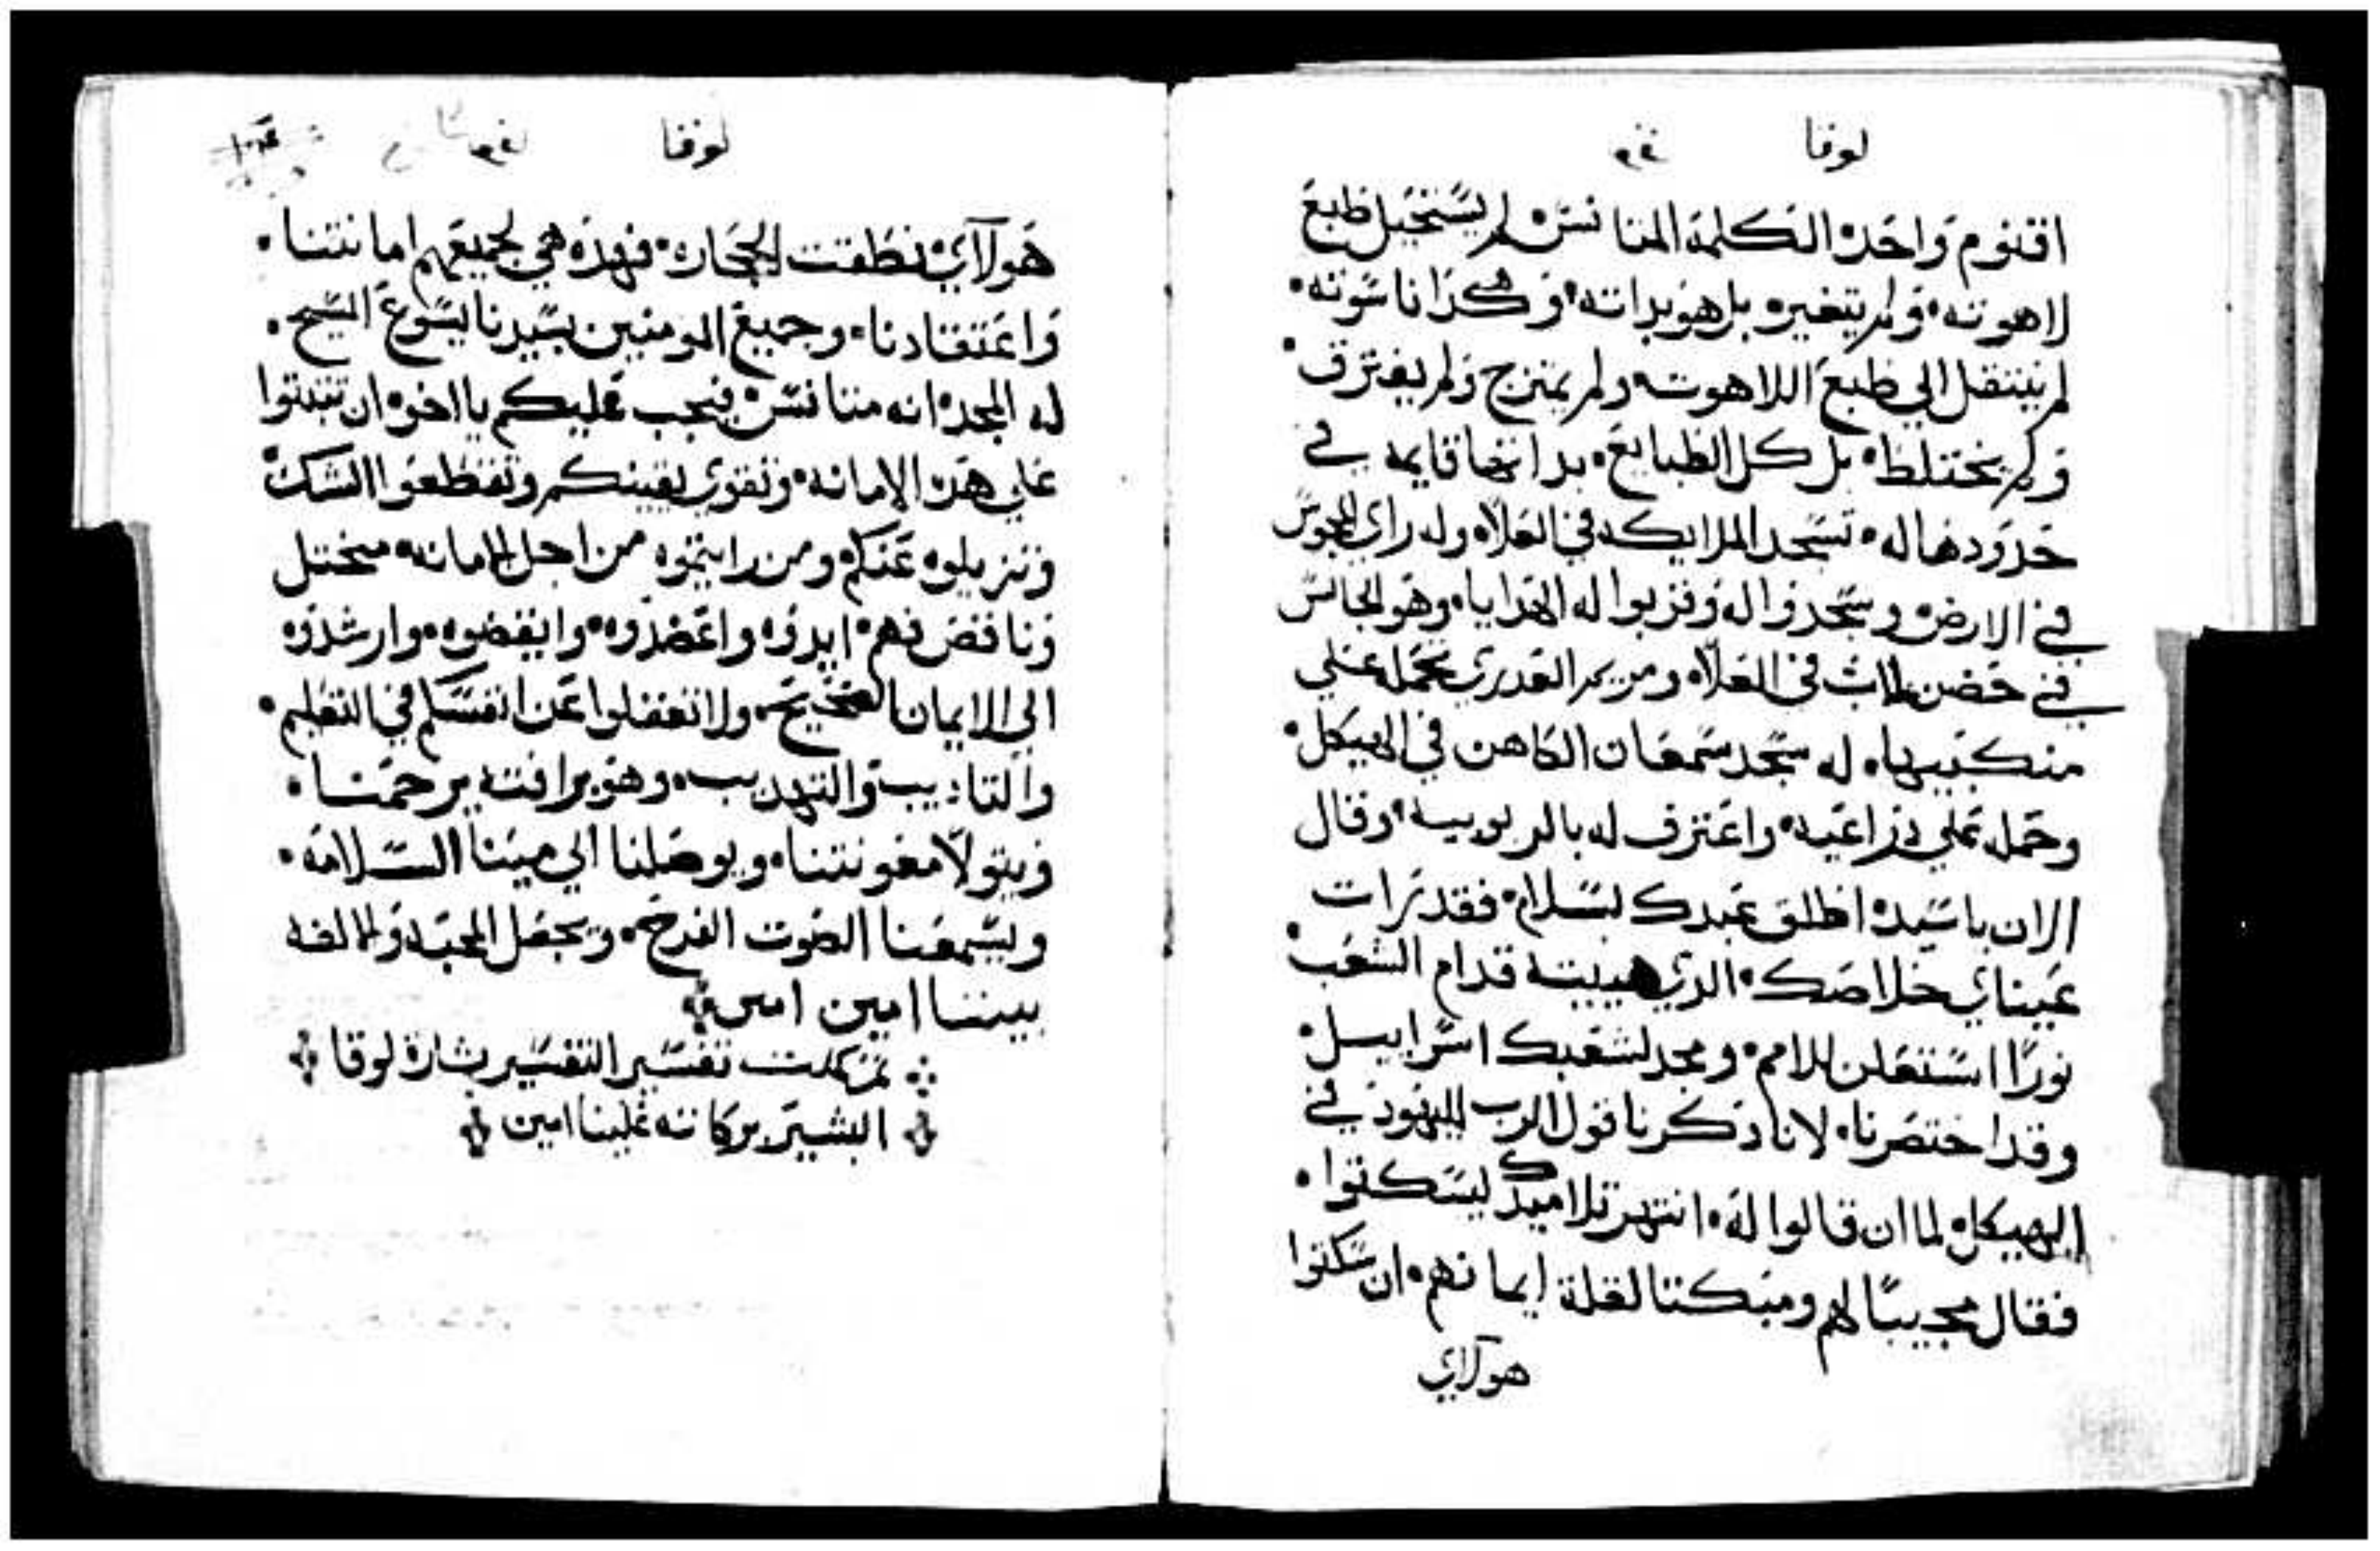 لوقا
اقنوم واحده الكلمة المتانس لم يستحيل طبع
لاهوته، ولم يتغير بل هو بداته وهكذا ناسوته،
لم ينتقل الي طبع اللاهوت ولم يمتزج ولم يفترق،
ولم يختلط، بل كل الطبايع، بداتها قايمه في
حدودها له، تسجد الملايكه في العلاه وله راي المجوس
في الارض وسجدوا له وقربوا له الهدايا، وهو الجالس
في حضن الاب في العلاه ومريم العدري تحمله علي
منكبيها، له سجد سمعان الكاهن في الهيكل،
وحمله علي دراعيه، واعترف له بالربوبيه، وقال
الان ياسيده اطلق عبدك بسلام، فقد رات
عيناي خلاصك، الدي هييته قدام الشعب،
نورًا استعلن للامم، ومجد لشعبك اسرايل،
وقد اختصرنا، لانا ذكرنا قول الرب لليهود في
الهيكل، لما ان قالوا له، انتهر تلاميدك ليسكتوا،
فقال مجيبًا لهم ومبكتا لقلة ايمانهم، ان سكتوا
هولاي
لوقا
هولاآي، نطقت الحجاره، فهده هي لجميعهم امانتنا،
واعتقادنا، وجميع المومنين بسيدنا يسوع المسيح،
له المجد، انه متانس، فيجب عليكم يا اخوه ان تتبتوا
علي هده الامانه، وتقوي يقينكم وتقطعوا الشك
وتزيلوه عنكم ومن رايتموه من اجل الامانه، مختل
وناقص فهم، ايدوه واعضدوه، وايقضوه، وارشدوه
الي الايمان الصحيح، ولا تغفلوا عن انفسكم في التعليم،
والتاديب والتهديب، وهو برافته يرحمنا،
ويتولا معونتنا، ويوصلنا الي مينا السلامه،
ويسمعنا الصوت الفرح، ويجعل المحبه والالفه
بيننا امين امين
تم كلت تفسير التفسير بشارة لوقا
البشير بركاته علينا امين